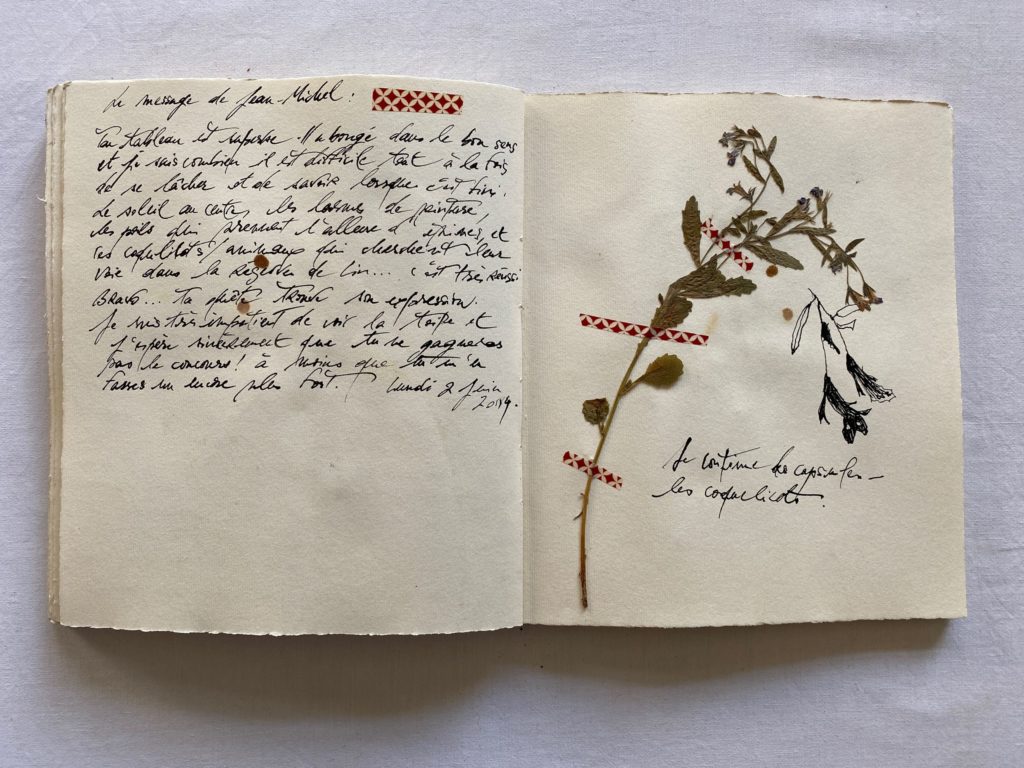 Le message de Jean-Michel :
Ton tableau est superbe. Il a bougé dans le bon sens
et je sais combien il est difficile tout à la fois
de se lâcher et de savoir lorsque c'est fini.
Le soleil au centre, les larmes de peinture,
les poils qui prennent l'allure d'épines, et
ces coquelicots/animaux qui cherchent leur
voie dans la de lin... c'est très réussi
Bravo... ta quête trouve son expression.
Je suis très impatient de voir la taipe et
j'espère sincèrement que tu ne gagneras
pas le concours! à moins que tu n'en
fasses un encore plus fort. Lundi 2 juin
2014.
Je continue les capsules -
les coquelicots.